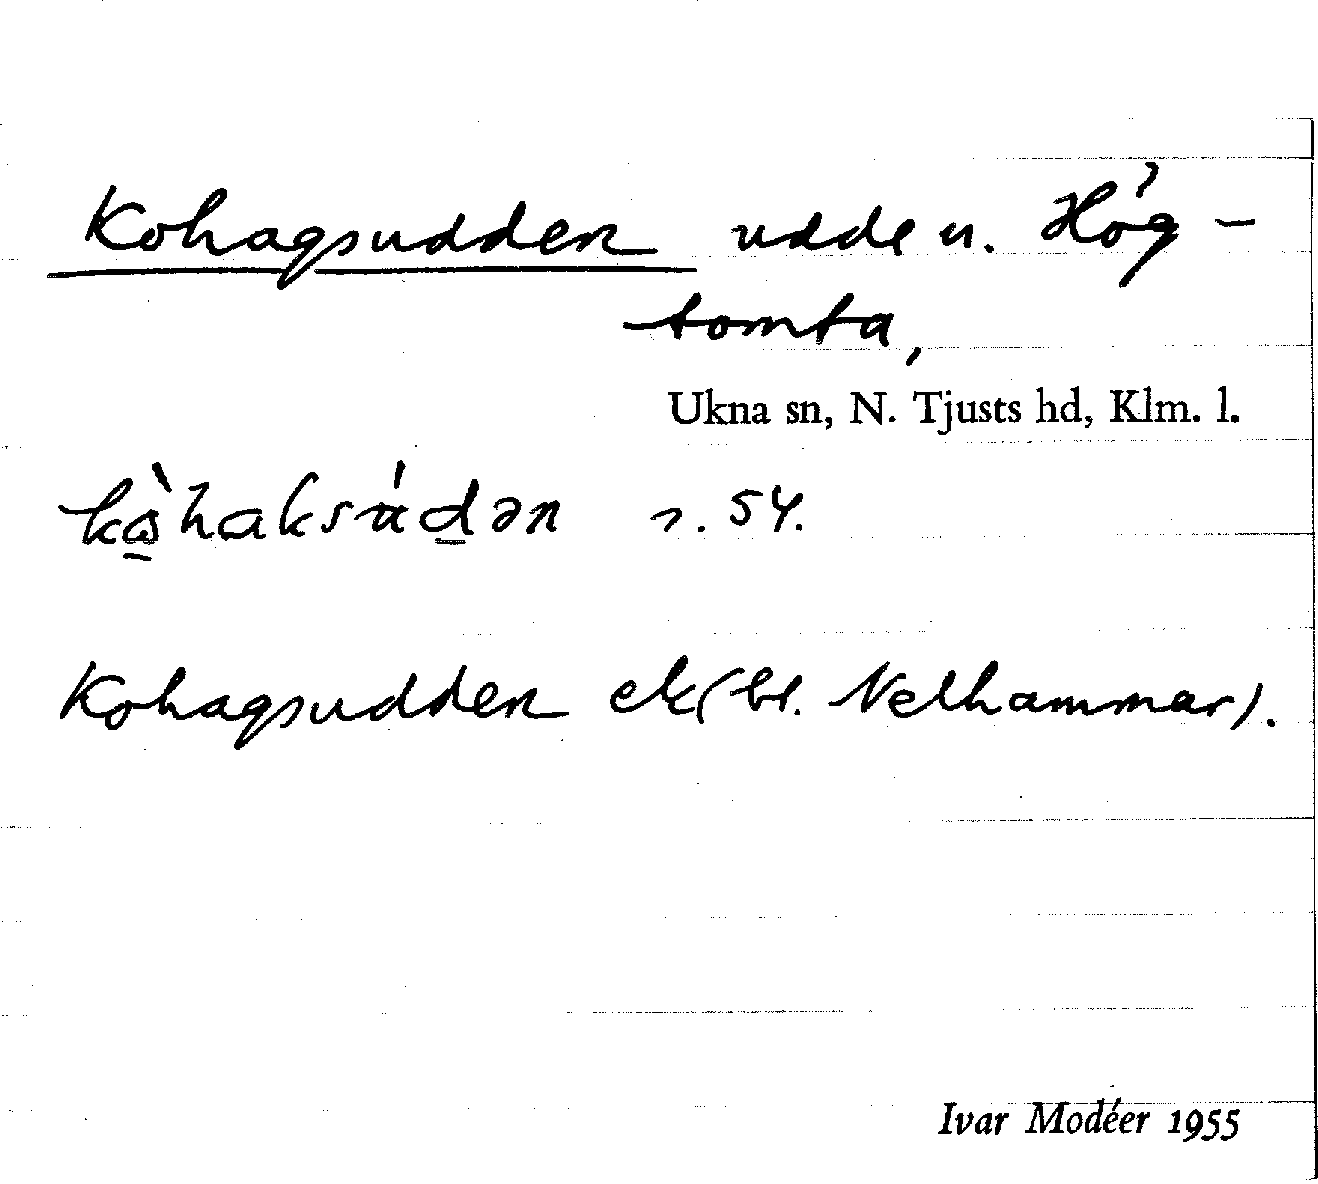 Kohagsudden udde u. Hög-
tomta,
Ukna sn, N. Tjusts hd, Klm. l.
kὼ̱haksúd̲ən r. 54.
Kohagsudden ek (bl. Nelhammar).
Ivar Modéer 1955